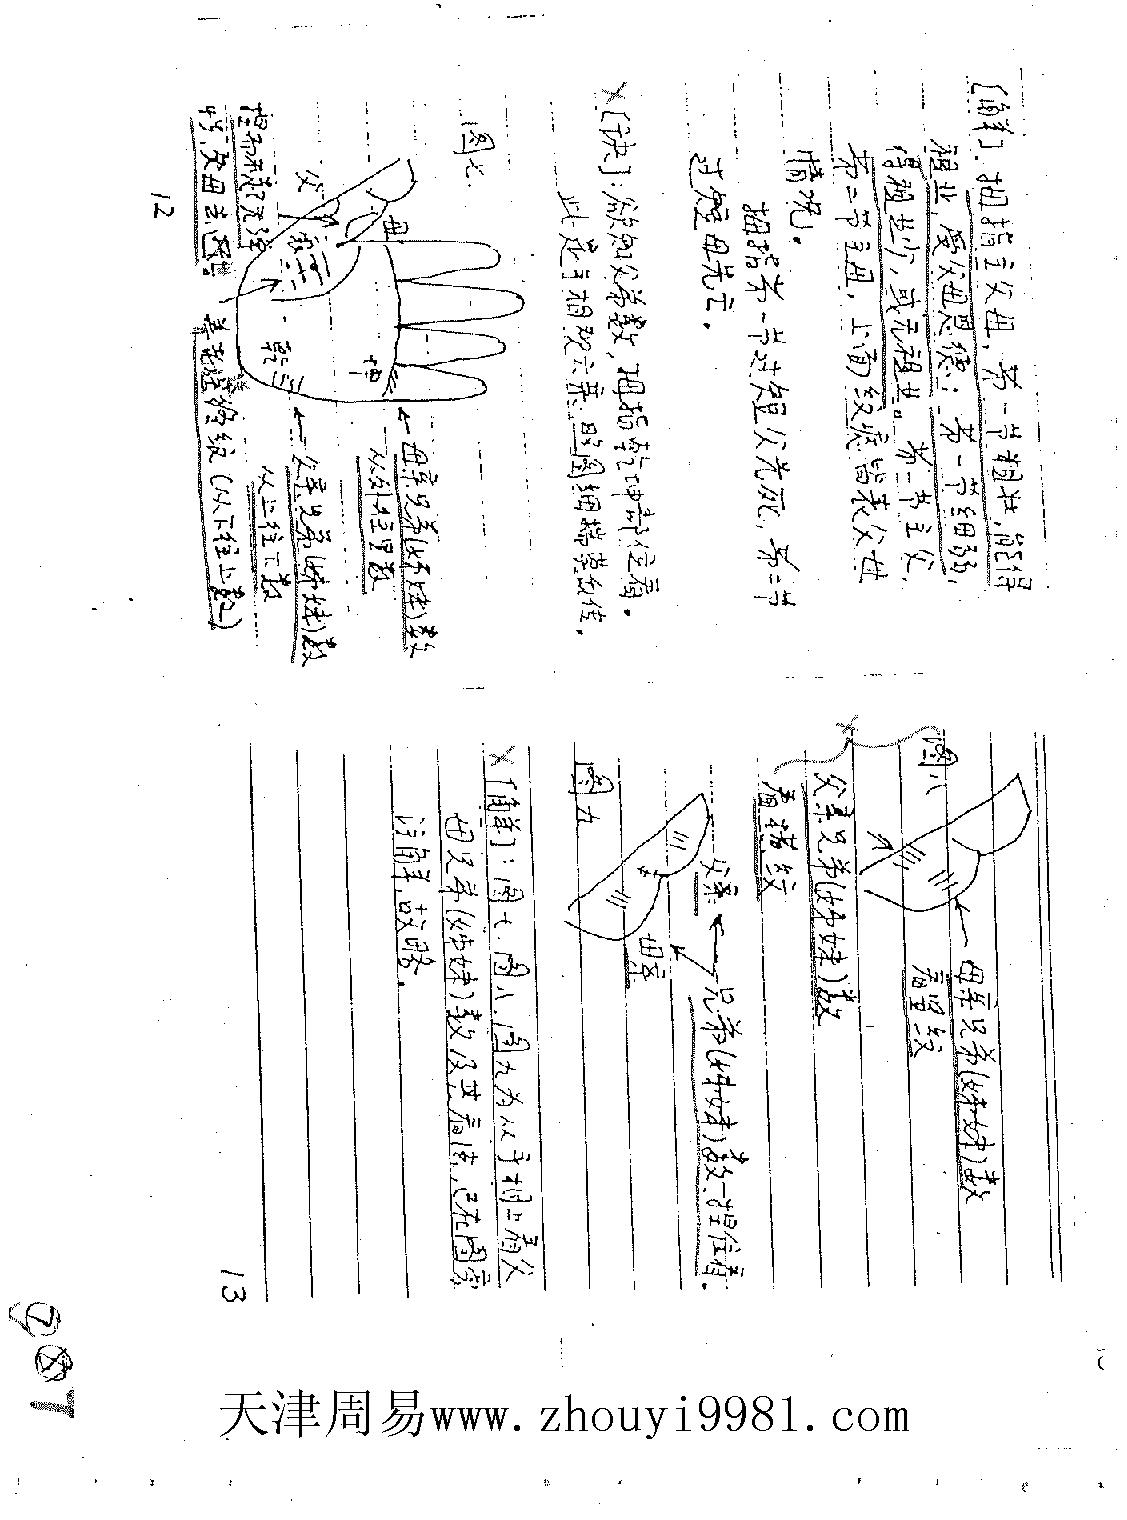 〔解〕：拇指主父母，第一节粗壮，能得
祖业，受父母恩德；第一节细弱，
得祖业少，或无祖业。第二节主父，
第三节主母，上面纹痕皆表父母
情况。
拇指第一节过短父先死，第二节
过短母先亡。
×〔诀〕：欲知父弟数，拇指乾坤部位看。
此是手相观六亲，照图细揣莫效值。
图七．
父
母
坤
乾
←母亲兄弟(姊妹)数
从外往里数
←父亲兄弟(姊妹)数
从上往下数
看 纹(从下往上数)
12
图八
←母亲兄弟(姊妹)数
看里纹
父亲兄弟(姊妹)数
看 纹
图九
父亲
母亲
兄弟(姊妹)数一 看．
×〔解〕：图七、图八、图九为从手相上看父
母兄弟(姊妹)数及其看法，已在图旁
注解，故略．
13
天津周易www.zhouyi9981.com